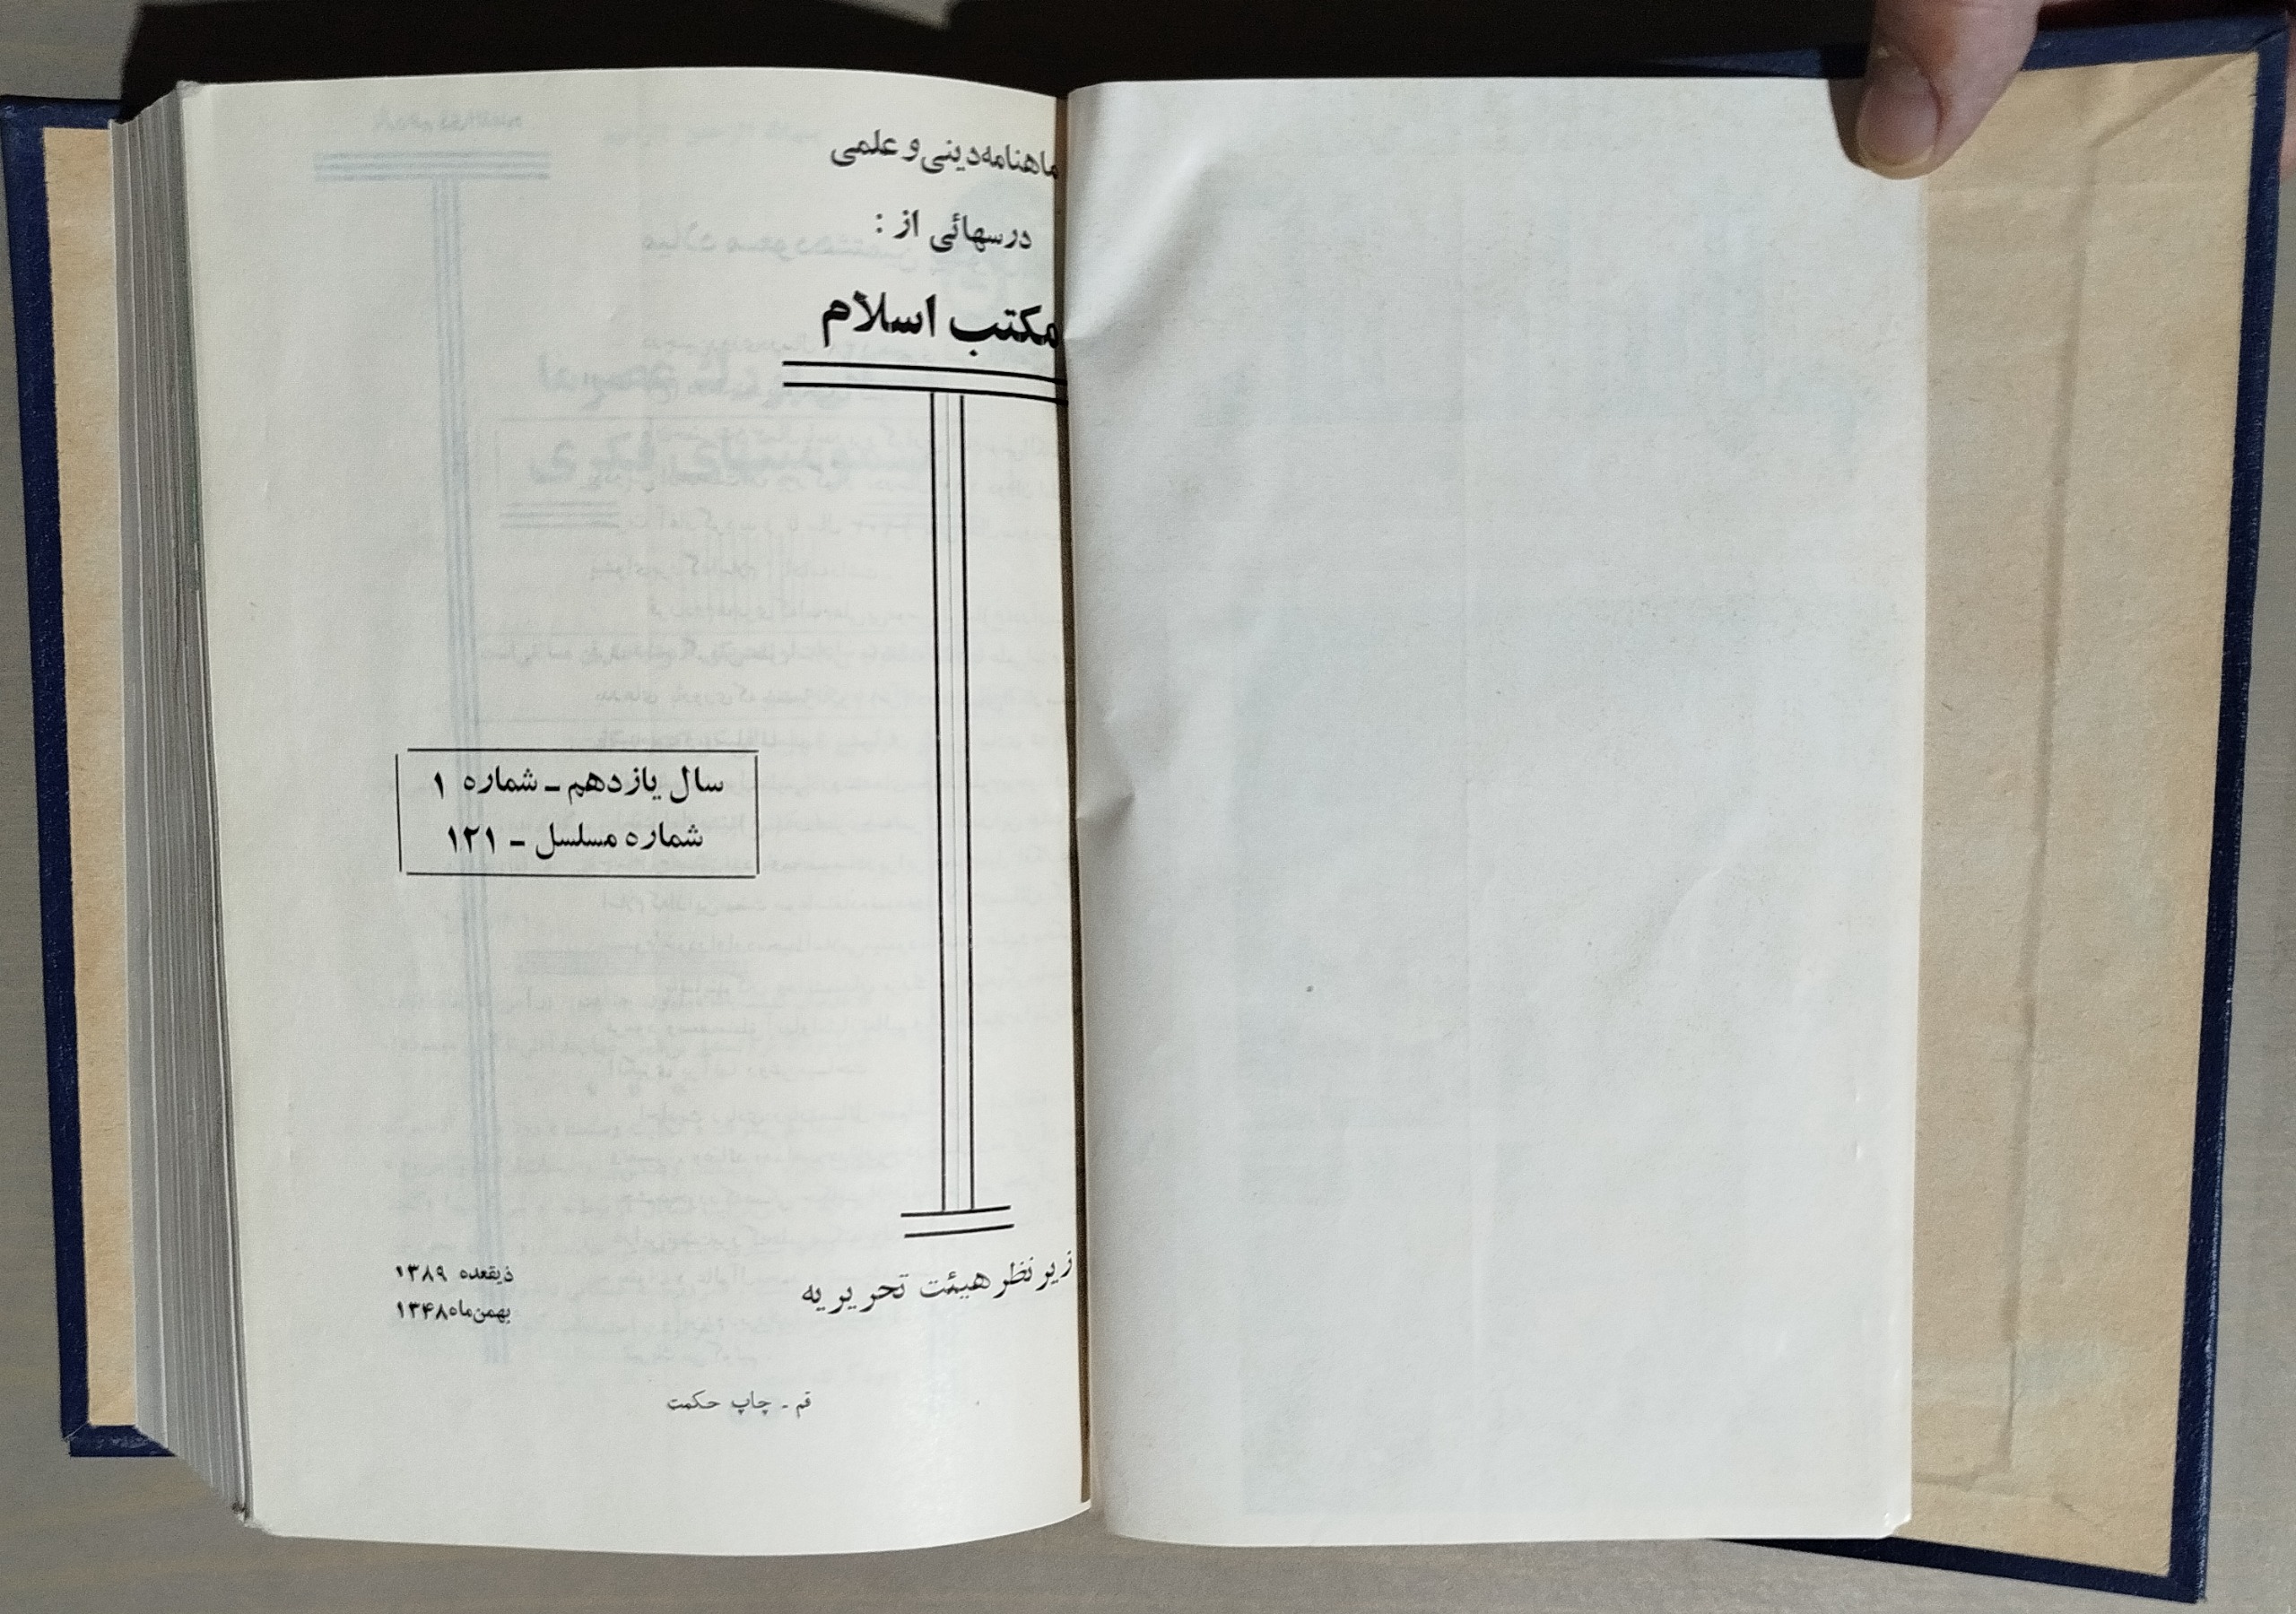 ماهنامه دینی و علمی
درسهائی از :
مکتب اسلام
سال یازدهم ـ شماره ۱
شماره مسلسل ـ ۱۲۱
زیر نظر هیئت تحریریه
ذیقعده ۱۳۸۹
بهمن‌ماه ۱۳۴۸
قم ـ چاپ حکمت